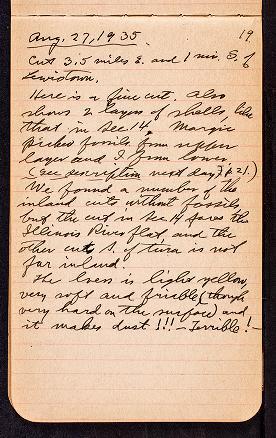 Aug. 27, 1935. 19
Cut 3.5 miles E. and 1 mi. S. of
Lewistown.
Here is a fine cut. Also
shows 2 layers of shells, like
that in Sec 14. Margie
picked fossils from upper
layer and I from lower.
(See description next day, p. 21.)
We found a number of the
inland cuts without fossils
but the cut in Sec 14 faces the
Illinois River flat, and the
other cut S. of turn is not
far inland.
The loess is light yellow,
very soft and friable (though
very hard on the surface) and
it makes dust !!! – Terrible! –